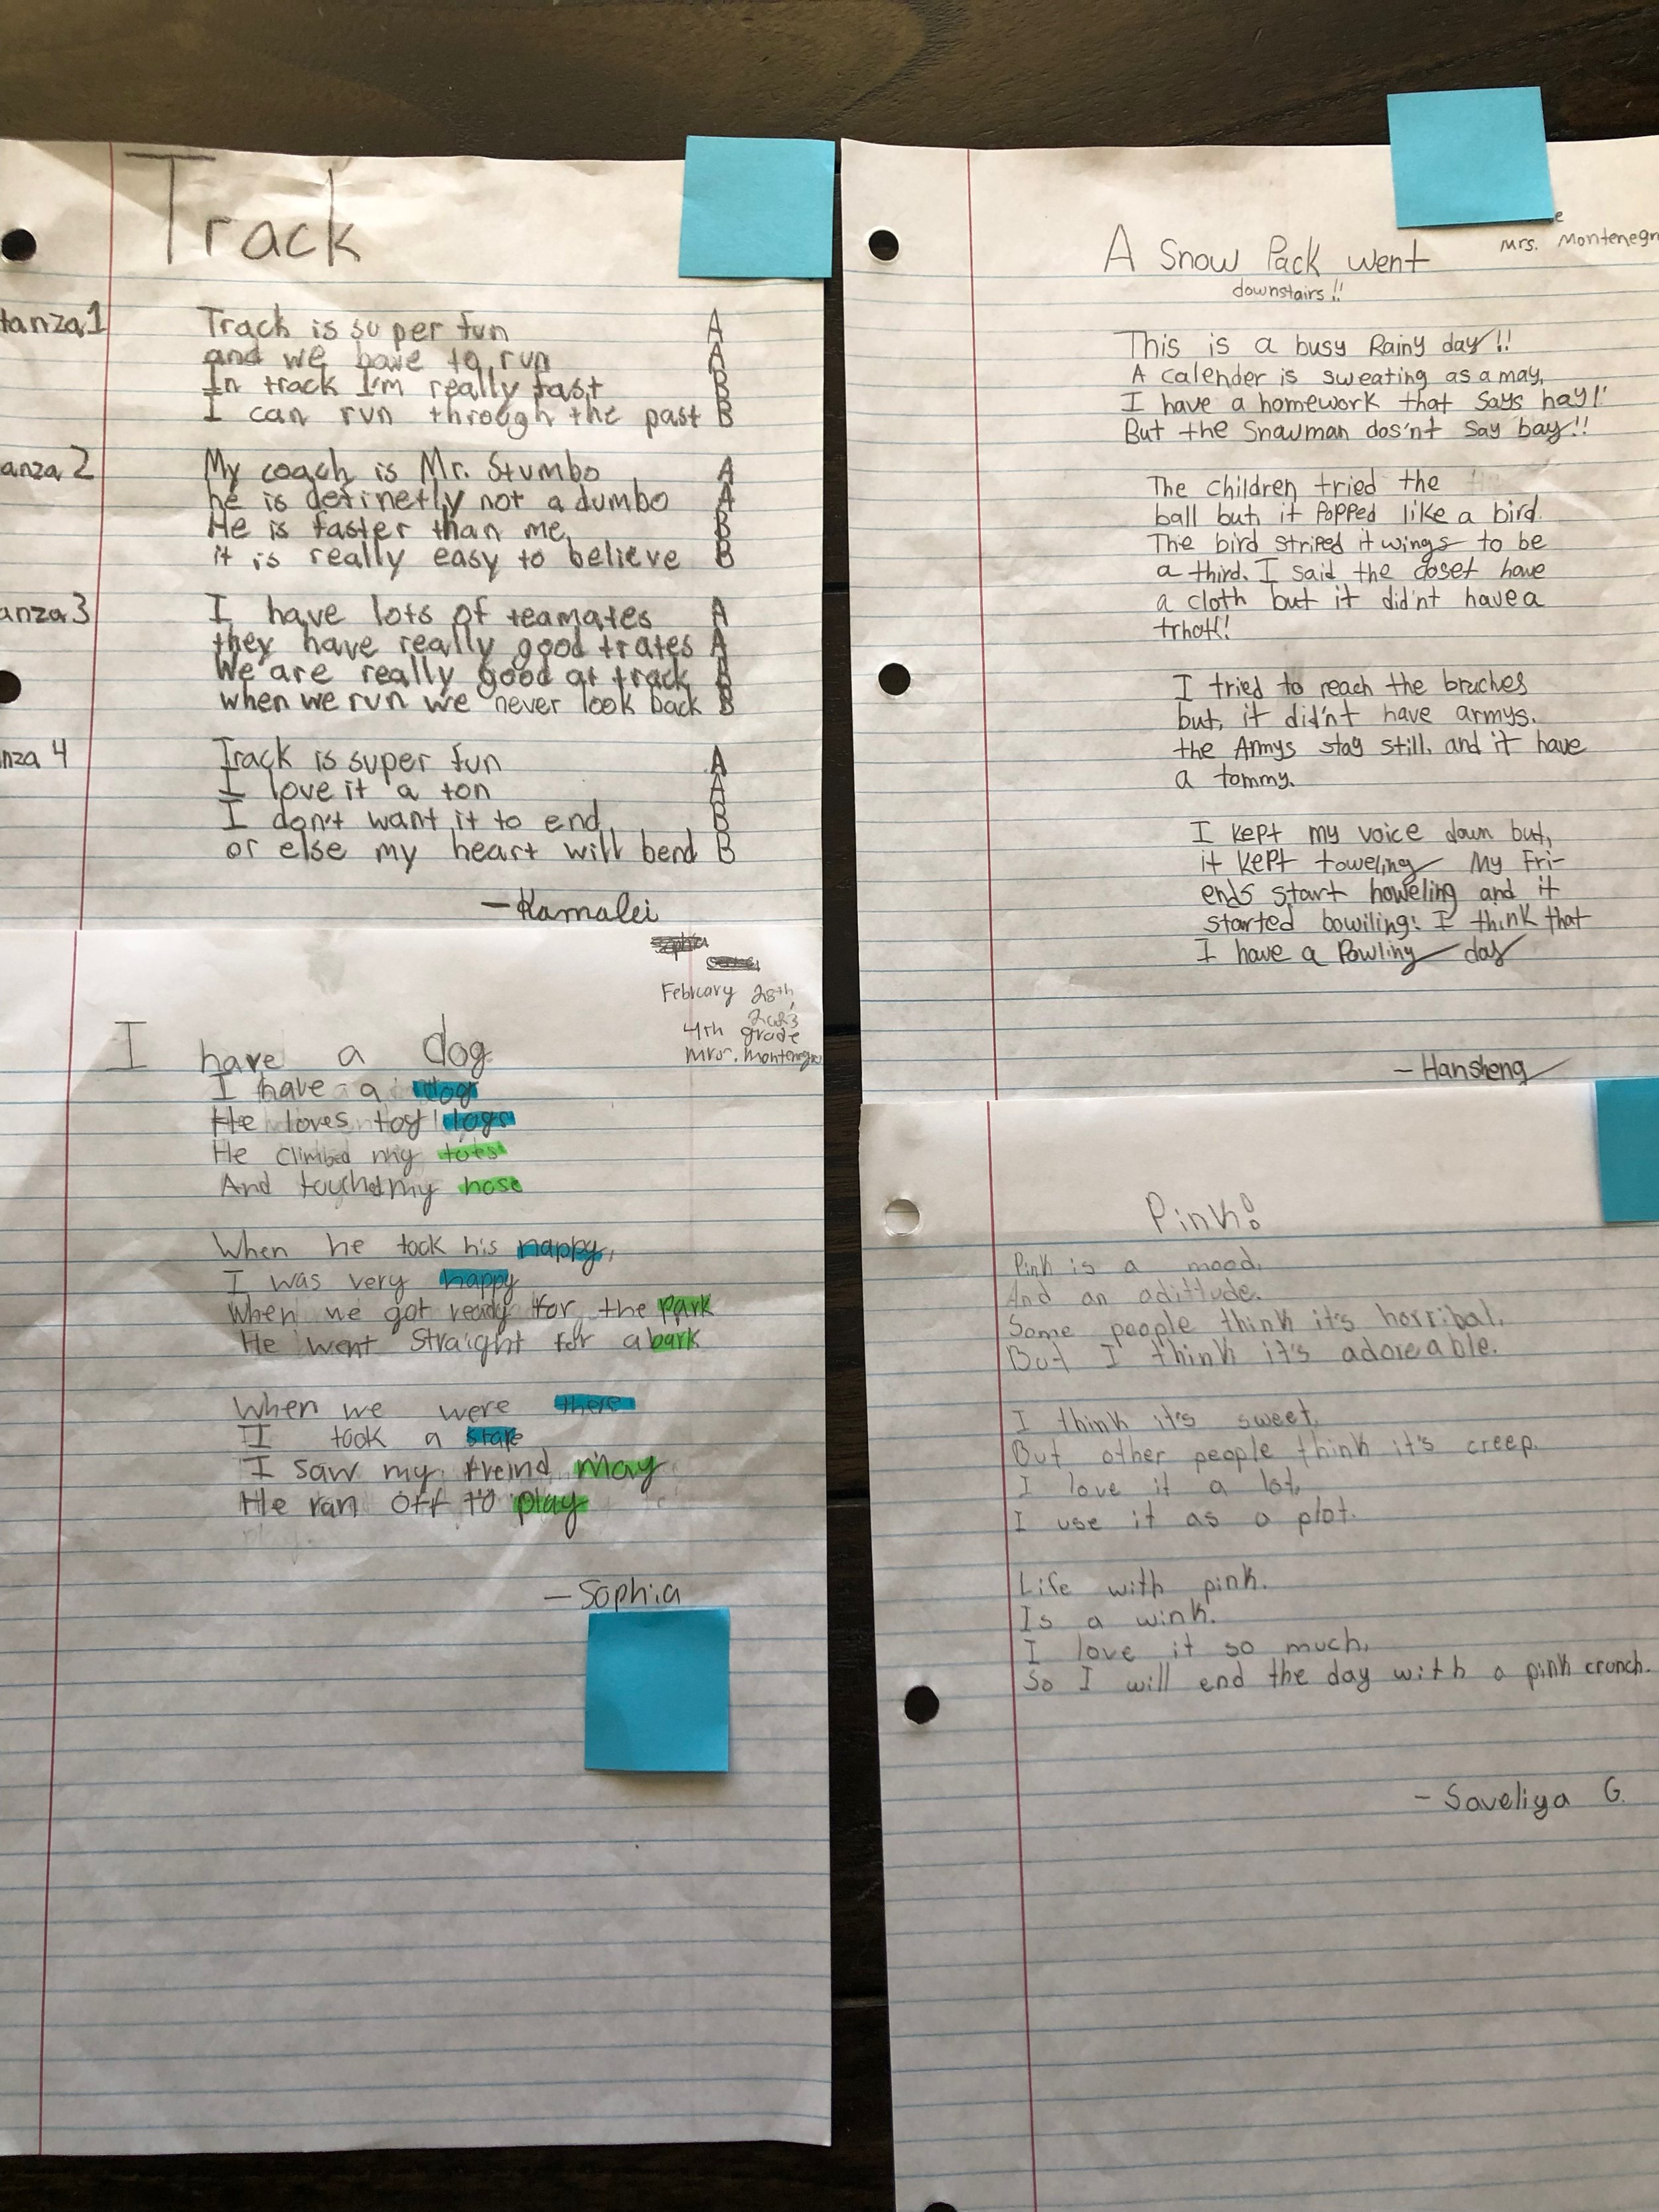 Track
tanza 1
Track is super fun A
and we have to run A
In track I'm really fast B
I can run through the past B
anza 2
My coach is Mr. Stumbo A
he is definetly not a dumbo A
He is faster than me, B
it is really easy to believe B
anza 3
I have lots of teamates A
they have really good trates A
We are really good at track B
when we run we never look back B
nza 4
Track is super fun A
I love it a ton A
I don't want it to end, B
or else my heart will bend B
—Kamalei
February 28th,
2023
4th grade
Mrs. Montenegro
I have a dog
I have a dog
He loves logs
He climbed my
And touched my nose
When he took his nappy,
I was very happy
When we got ready for the park
He went straight for a bark
When we were there
I took a stare
I saw my freind may
He ran off to play
—Sophia
e
Mrs. Montenegr
A Snow Pack went
downstairs!!
This is a busy Rainy day!!
A calender is sweating as a may,
I have a homework that says hay!!
But the Snowman dos'nt say bay!!
The children tried the
ball but, it popped like a bird.
The bird striped it wings to be
a third. I said the closet have
a cloth but it did'nt have a
trhoth!
I tried to reach the braches
but, it did'nt have armys.
the Armys stay still. and it have
a tommy.
I kept my voice down but,
it kept toweling My Fri-
ends start howeling and it
started bowiling! I think that
I have a Powling day
—Hansheng
Pink!
Pink is a mood,
And an adittude.
Some people think it's horribal,
But I think it's adoreable.
I think it's sweet,
But other people think it's creep.
I love it a lot,
I use it as a plot.
Life with pink.
Is a wink.
I love it so much,
So I will end the day with a pink crunch.
- Saveliya G.